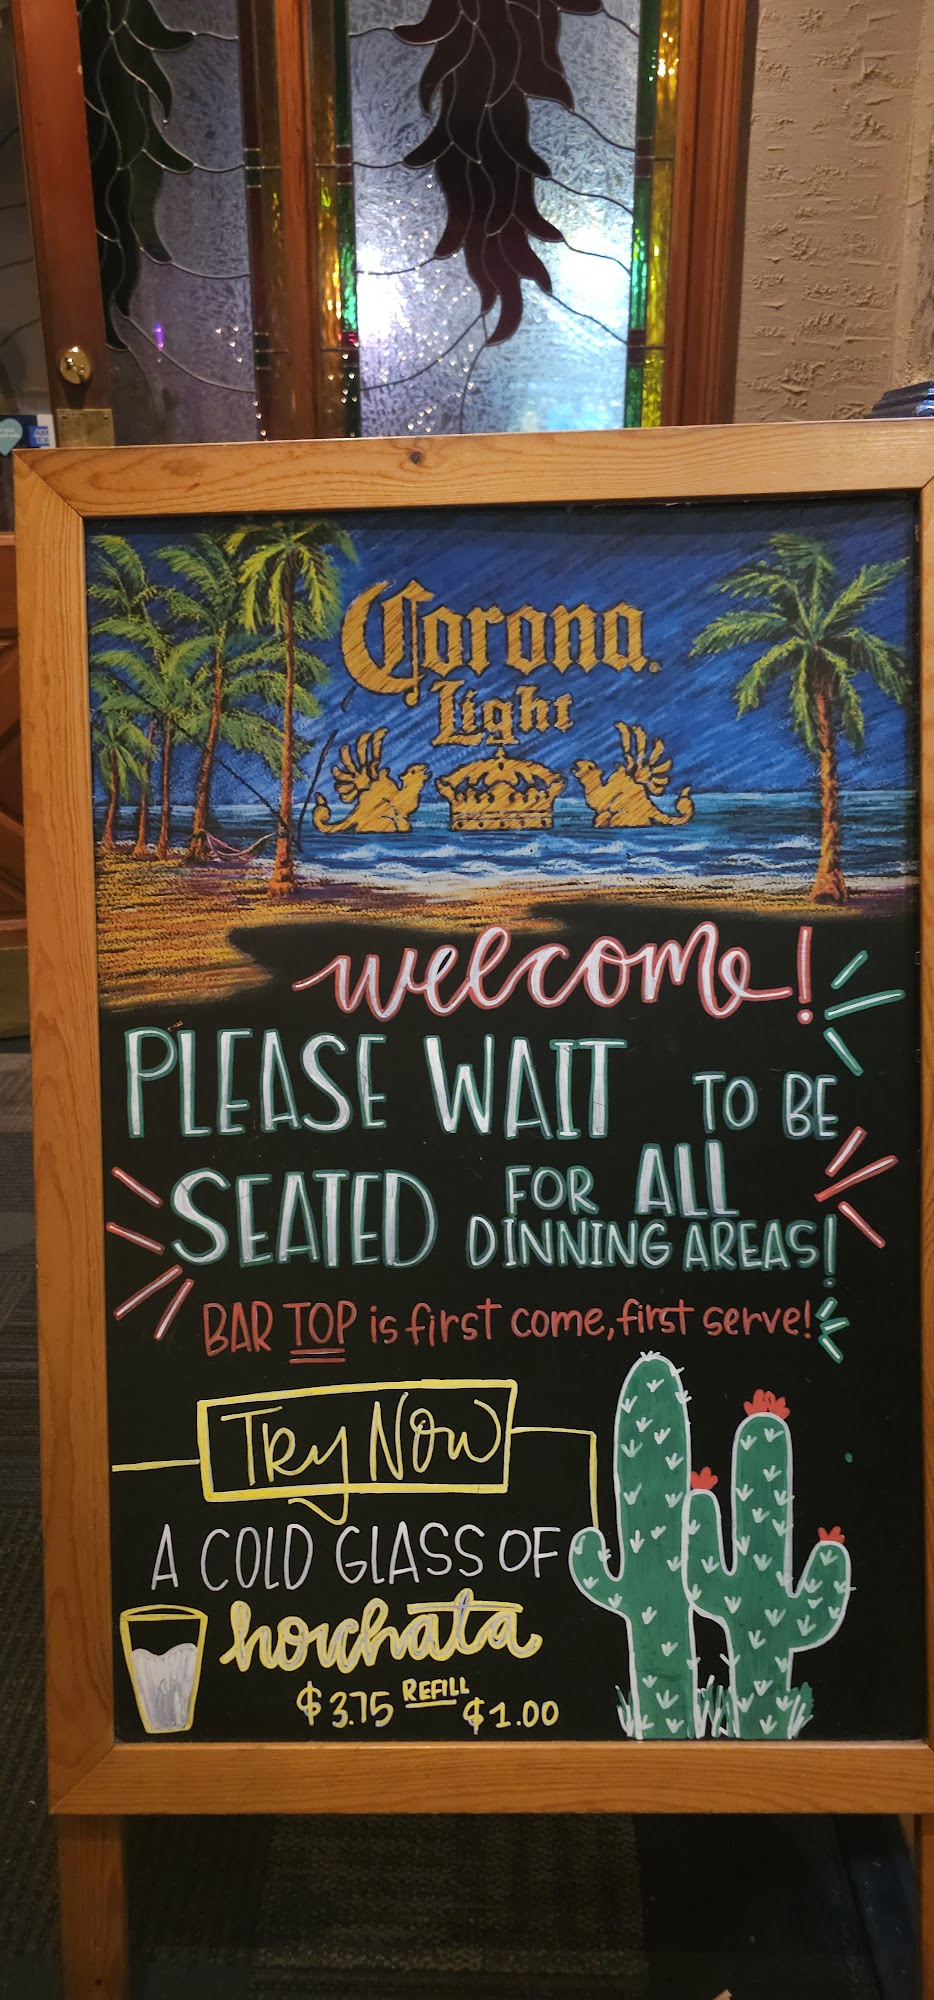 Corona
Light
welcome!
PLEASE WAIT TO BE
SEATED FOR ALL
DINNING AREAS!
BAR TOP is first come, first serve!
Try Now
A COLD GLASS OF
horchata
$3.75 REFILL $1.00